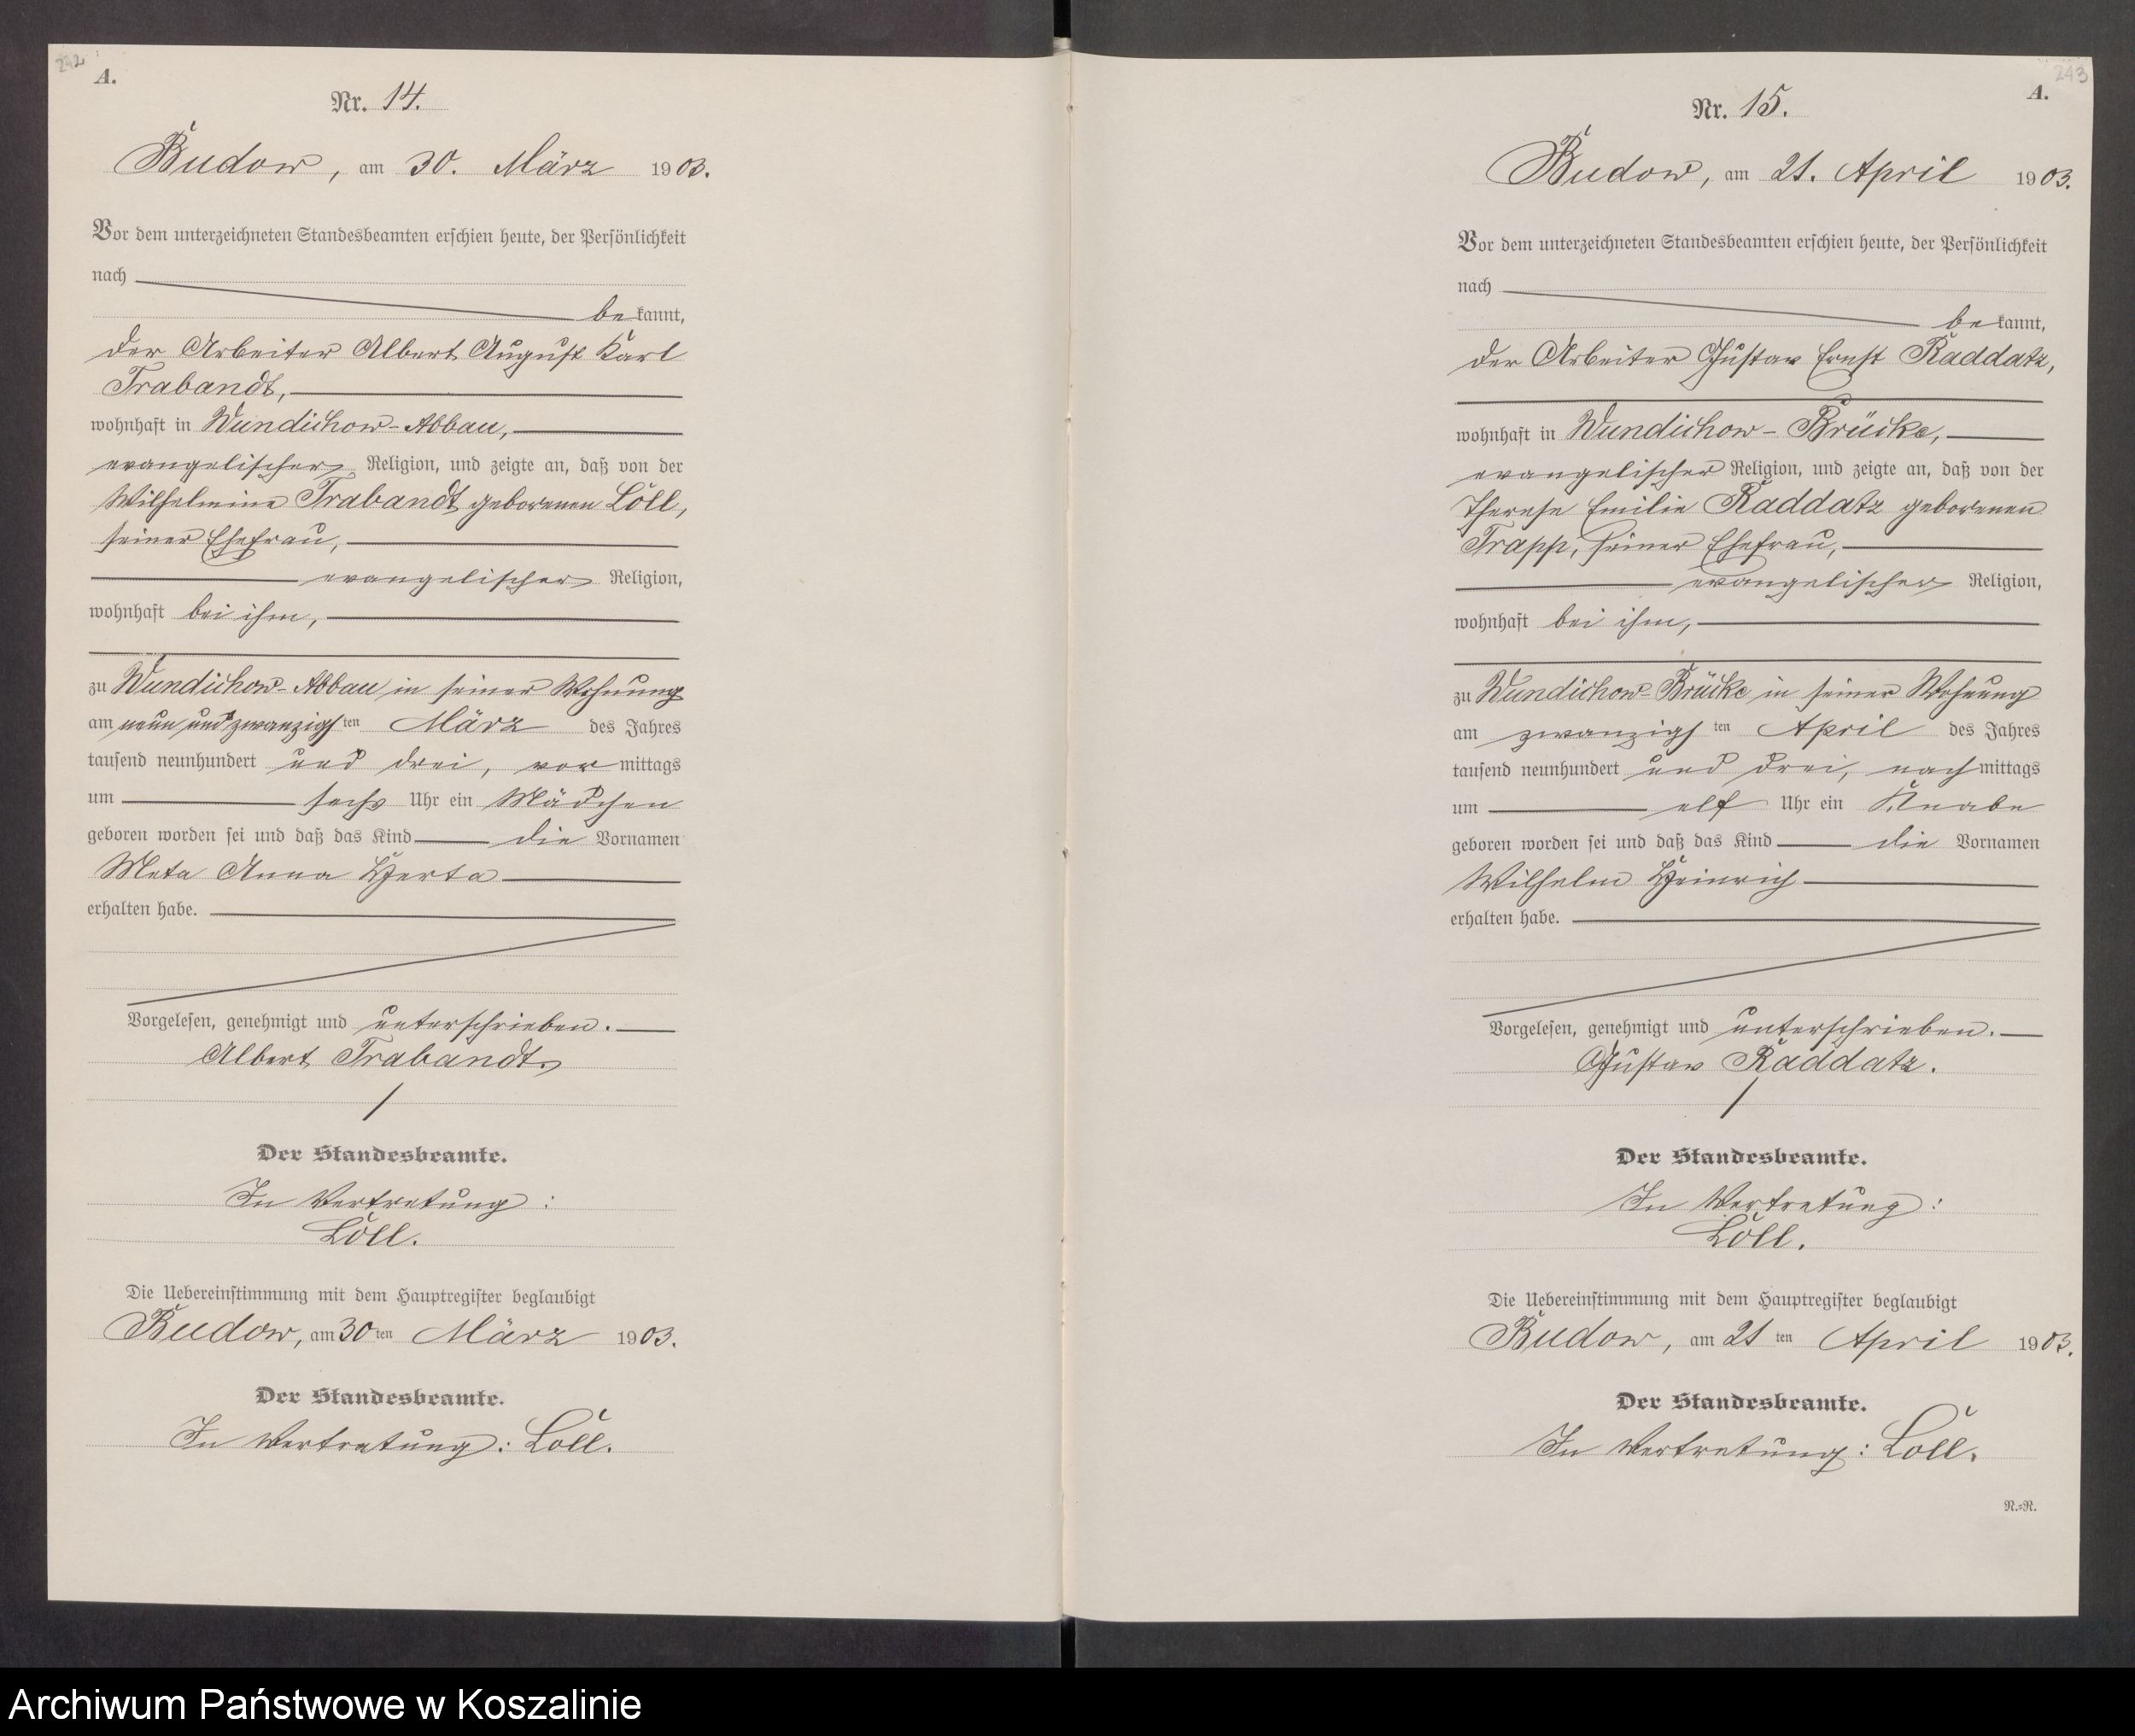 242
A.
Nr. 14.
Budow, am 30. März 1903.
Vor dem unterzeichneten Standesbeamten erschien heute, der Persönlichkeit
nach
bekannt,
der Arbeiter Albert August Karl
Trabandt,
wohnhaft in Wundichow-Abbau,
evangelischer Religion, und zeigte an, daß von der
Wilhelmine Trabandt geborenen Löll,
seiner Ehefrau,
evangelischer Religion,
wohnhaft bei ihm,
zu Wundichow-Abbau in seiner Wohnung
am neun und zwanzigsten März des Jahres
tausend neunhundert und drei, vormittags
um sechs Uhr ein Mädchen
geboren worden sei und daß das Kind die Vornamen
Meta Anna Herta
erhalten habe.
Vorgelesen, genehmigt und unterschrieben.
Albert Trabandt.
Der Standesbeamte.
In Vertretung:
Löll.
Die Uebereinstimmung mit dem Hauptregister beglaubigt
Budow, am 30ten März 1903.
Der Standesbeamte.
In Vertretung: Löll.
243
A.
Nr. 15.
Budow, am 21. April 1903.
Vor dem unterzeichneten Standesbeamten erschien heute, der Persönlichkeit
nach
bekannt,
der Arbeiter Gustav Ernst Raddatz,
wohnhaft in Wundichow-Brücke,
evangelischer Religion, und zeigte an, daß von der
Therese Emilie Raddatz geborenen
Trapp, seiner Ehefrau,
evangelischer Religion,
wohnhaft bei ihm,
zu Wundichow-Brücke in seiner Wohnung
am zwanzigsten April des Jahres
tausend neunhundert und drei, nachmittags
um elf Uhr ein Knabe
geboren worden sei und daß das Kind die Vornamen
Wilhelm Heinrich
erhalten habe.
Vorgelesen, genehmigt und unterschrieben.
Gustav Raddatz.
Der Standesbeamte.
In Vertretung:
Löll.
Die Uebereinstimmung mit dem Hauptregister beglaubigt
Budow, am 21ten April 1903.
Der Standesbeamte.
In Vertretung: Löll.
N.=R.
Archiwum Państwowe w Koszalinie